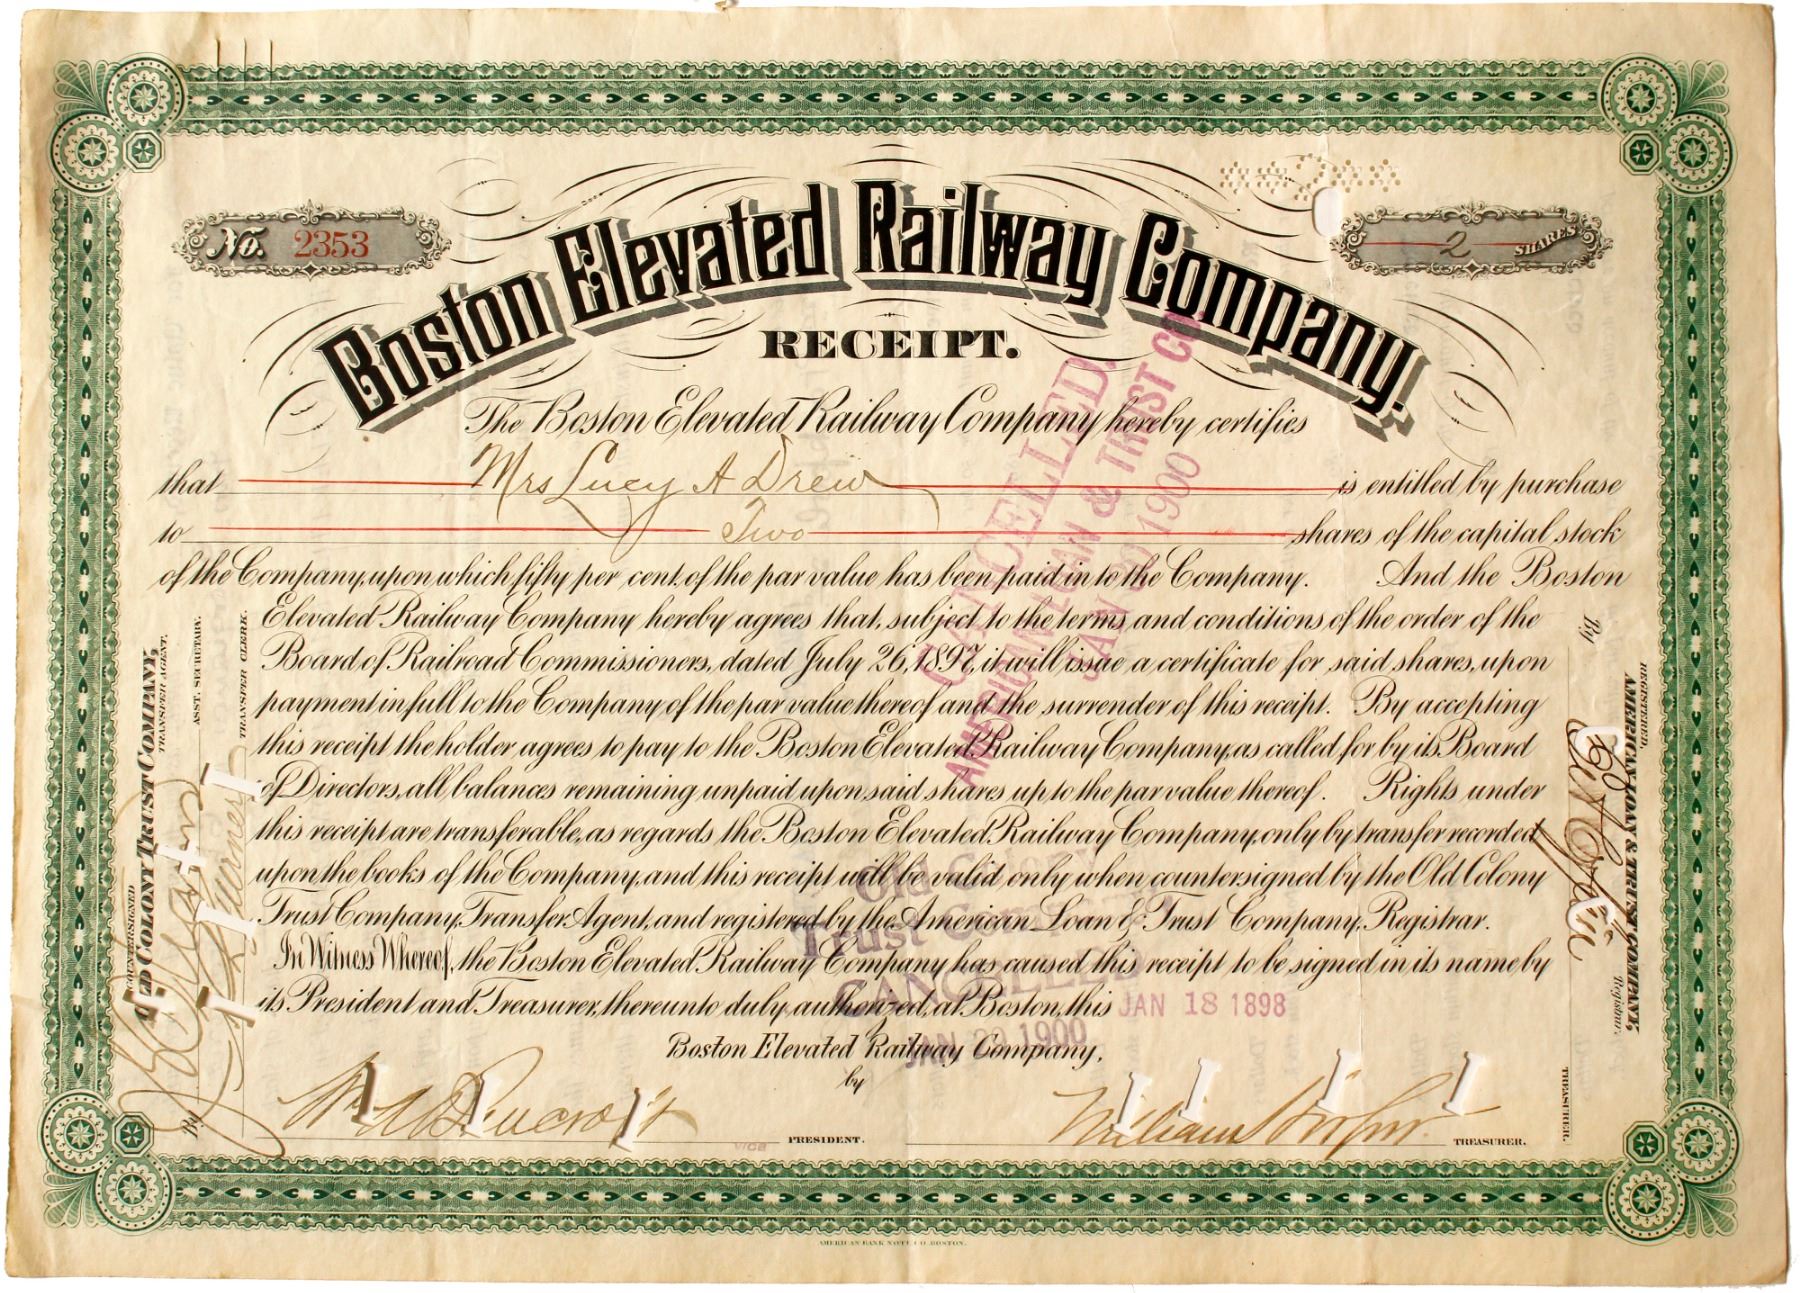 No. 2353
2 SHARES
Boston Elevated Railway Company.
RECEIPT.
The Boston Elevated Railway Company hereby certifies
that Mrs Lucy A Drew is entitled by purchase
to Two shares of the capital stock
of the Company, upon which fifty per cent. of the par value has been paid in to the Company. And the Boston
Elevated Railway Company hereby agrees that, subject to the terms and conditions of the order of the
Board of Railroad Commissioners, dated July 26, 1897, it will issue a certificate for said shares, upon
payment in full to the Company of the par value thereof and the surrender of this receipt. By accepting
this receipt the holder agrees to pay to the Boston Elevated Railway Company, as called for by its Board
of Directors, all balances remaining unpaid upon said shares up to the par value thereof. Rights under
this receipt are transferable, as regards the Boston Elevated Railway Company, only by transfer recorded
upon the books of the Company, and this receipt will be valid only when countersigned by the Old Colony
Trust Company, Transfer Agent, and registered by the American Loan & Trust Company, Registrar.
In Witness Whereof, the Boston Elevated Railway Company has caused this receipt to be signed in its name by
its President and Treasurer, thereunto duly authorized, at Boston, this JAN 18 1898
Boston Elevated Railway Company,
by
VICE PRESIDENT.
William Hooper TREASURER.
COUNTERSIGNED
OLD COLONY TRUST COMPANY,
TRANSFER AGENT.
By
ASST. SECRETARY.
TRANSFER CLERK.
REGISTERED.
AMERICAN LOAN & TRUST COMPANY,
Registrar.
By
TREASURER.
CANCELLED.
AMERICAN LOAN & TRUST CO.
JAN 20 1900
Old Colony
Trust Company
CANCELLED
JAN 20 1900
AMERICAN BANK NOTE CO. BOSTON.